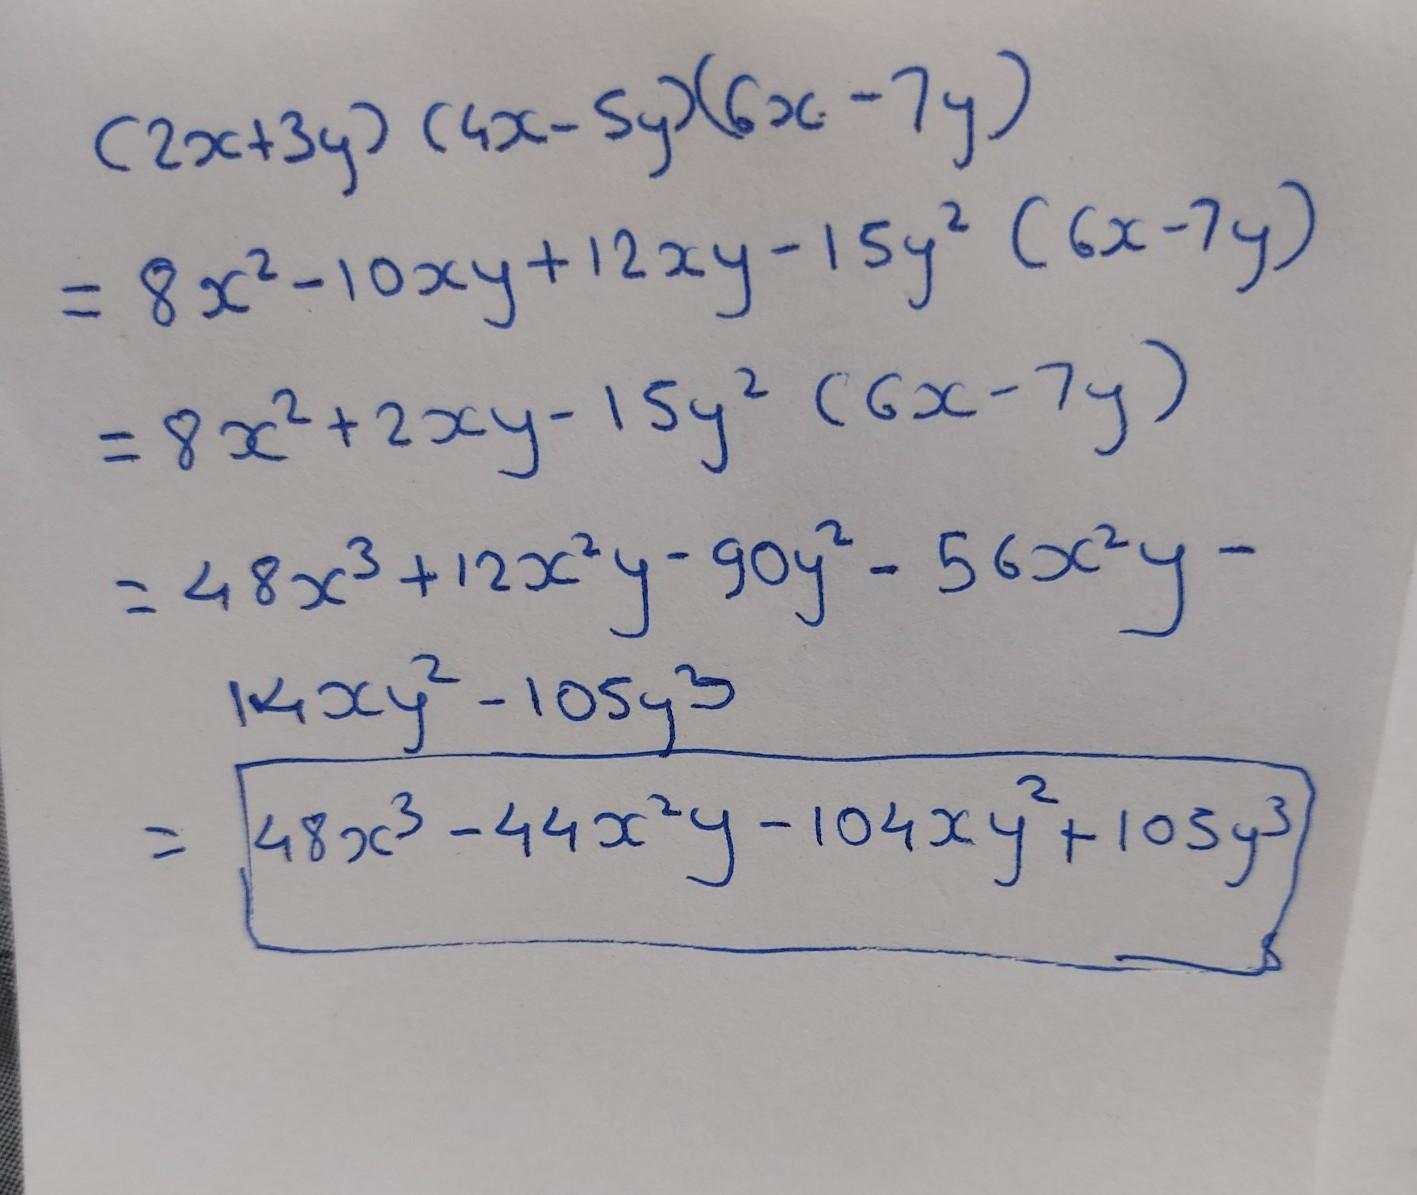 (2x+3y) (4x-5y)(6x-7y)
= 8x²-10xy+12xy-15y² (6x-7y)
= 8x²+2xy-15y² (6x-7y)
= 48x³+12x²y-90y²-56x²y-
14xy²-105y³
= 48x³-44x²y-104xy²+105y³